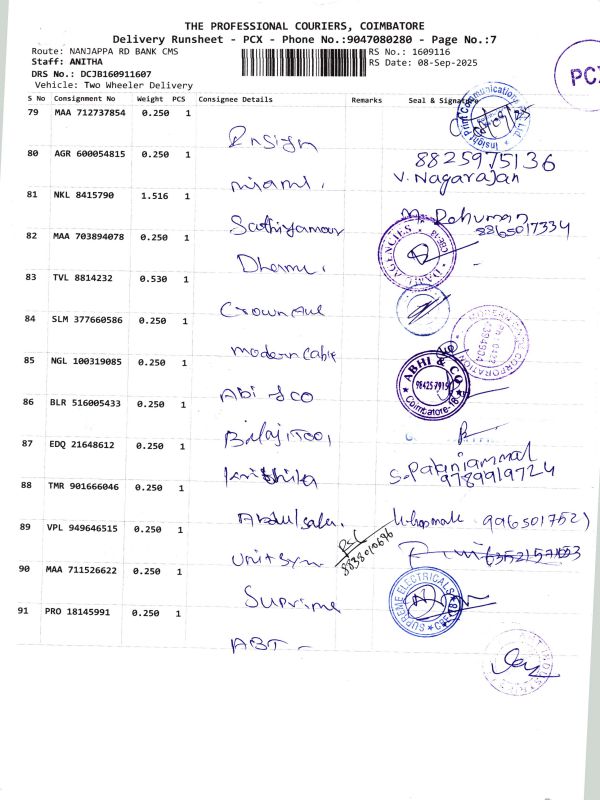 THE PROFESSIONAL COURIERS, COIMBATORE
Delivery Runsheet - PCX - Phone No.:9047080280 - Page No.:7
Route: NANJAPPA RD BANK CMS
RS No.: 1609116
Staff: ANITHA
RS Date: 08-Sep-2025
DRS No.: DCJB160911607
Vehicle: Two Wheeler Delivery
PCX
S No Consignment No Weight PCS Consignee Details Remarks Seal & Signature
79 MAA 712737854 0.250 1
Ensign
80 AGR 600054815 0.250 1
8825975136
miami.
V. Nagarajan
81 NKL 8415790 1.516 1
Sathiyamoor
M. Rahuman
8865017334
82 MAA 703894078 0.250 1
Dharani.
AGENCIES
83 TVL 8814232 0.530 1
Crown Aul
84 SLM 377660586 0.250 1
modern Cable
CORPORATION
85 NGL 100319085 0.250 1
ABHI & CO
98425 7915
Coimbatore-18
Abi & co
86 BLR 516005433 0.250 1
Balaji Tool
87 EDQ 21648612 0.250 1
S. Palaniammal
9789919724
Krithika
88 TMR 901666046 1
Abdulsalar.
9965017521
89 VPL 949646515 0.250 1
8838010696
Unitsym
90 MAA 711526622 0.250 1
SUPREME ELECTRICALS
Suprime
91 PRO 18145991 0.250 1
ABT -